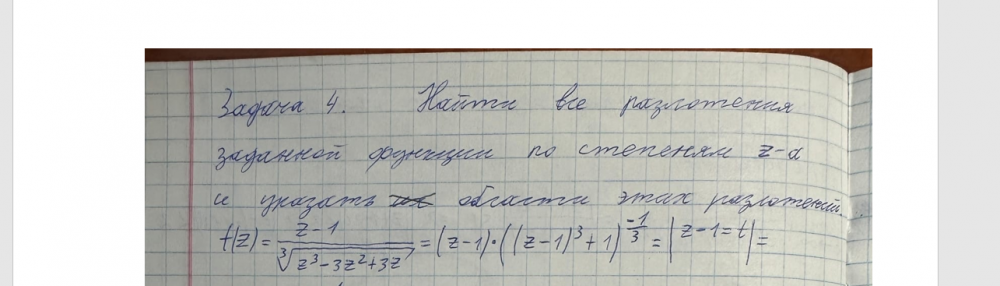 Задача 4. Найти все разложения
заданной функции по степеням z-α
и указать области этих разложений.
f(z) = \frac{z-1}{\sqrt[3]{z^3-3z^2+3z}} = (z-1)·((z-1)^3+1)^{-\frac{1}{3}} = |z-1=t| =